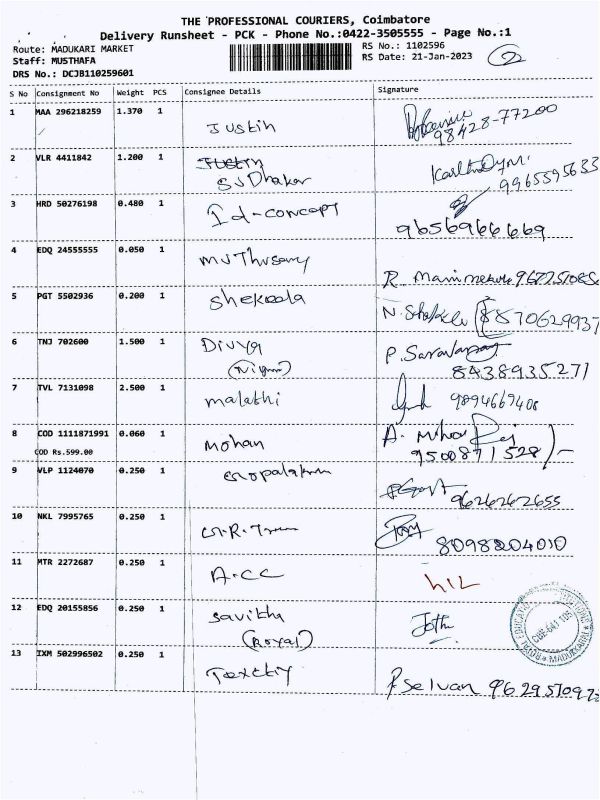 THE PROFESSIONAL COURIERS, Coimbatore
Delivery Runsheet - PCK - Phone No.:0422-3505555 - Page No.:1
Route: MADUKARI MARKET
RS No.: 1102596
Staff: MUSTHAFA
RS Date: 21-Jan-2023
2
DRS No.: DCJB110259601
S No Consignment No Weight PCS Consignee Details Signature
1 MAA 296218259 1.370 1 Justin
98428-77200
2 VLR 4411842 1.200 1 Justin
SJ Dhakar
9965595633
3 HRD 50276198 0.480 1 Id-concept
9656966669
4 EDQ 24555555 0.050 1
5 PGT 5502936 0.200 1 Shekeela
6 TNJ 702600 1.500 1 Divya
8438935271
7 TVL 7131098 2.500 1 malathi 9894669408
8 COD 1111871991 0.060 1 mohan
COD Rs.599.00
9500871528
9 VLP 1124070 0.250 1
9626262655
10 NKL 7995765 0.250 1
8098204010
11 MTR 2272687 0.250 1 A.CC HIL
12 EDQ 20155856 0.250 1 Savitha Jothi
(Royal)
ROYAL EDUCATIO
CBE-641 105
MADUKKARAI
13 IXM 502996502 0.250 1
P Selvan